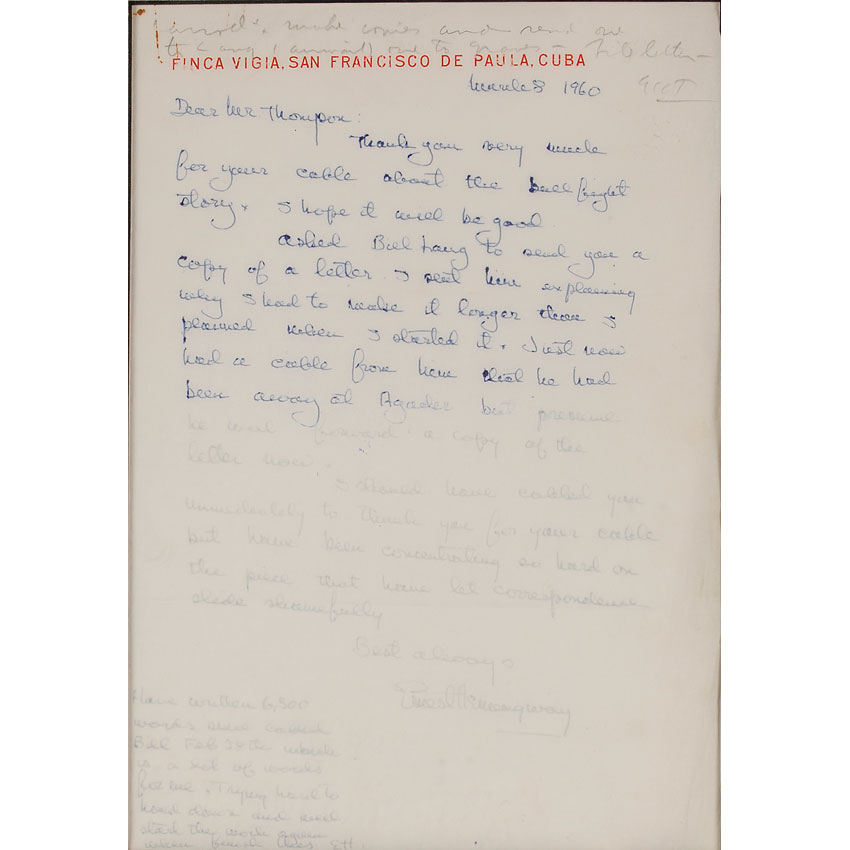 make copies and send one
to Lang (airmail) one to Graves - File letter -
FINCA VIGIA, SAN FRANCISCO DE PAULA, CUBA
March 8 1960
Dear Mr Thompson:
Thank you very much
for your cable about the bull fight
story. I hope it will be good
asked Bill Lang to send you a
copy of a letter I sent him explaining
why I had to make it longer than I
planned when I started it. Just now
had a cable from him that he had
been away at Agadir but presume
he will forward a copy of the
letter now.
I should have cabled you
immediately to thank you for your cable
but have been concentrating so hard on
the piece that have let correspondence
slide shamefully
Best always
Ernest Hemingway
Have written 6,500
words since cabled
Bill Feb 28th which
is a lot of words
for me. Trying hard to
hard down and will
start the work again
when finish this EH